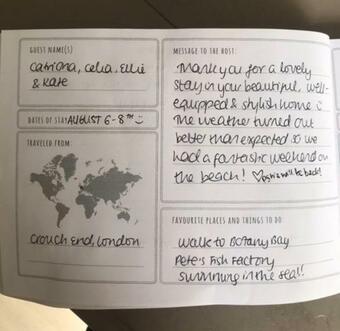 GUEST NAME(S)
Catriona, Celia, Ellie
& Kate
DATES OF STAY AUGUST 6-8TH
TRAVELLED FROM:
Crouch End, London
MESSAGE TO THE HOST:
Thank you for a lovely
stay in your beautiful, well-
equipped & stylish home
The weather turned out
better than expected so we
had a fantastic weekend on
the beach! will be back!
FAVOURITE PLACES AND THINGS TO DO
Walk to Botany Bay
Pete's Fish Factory
Swimming in the sea!!